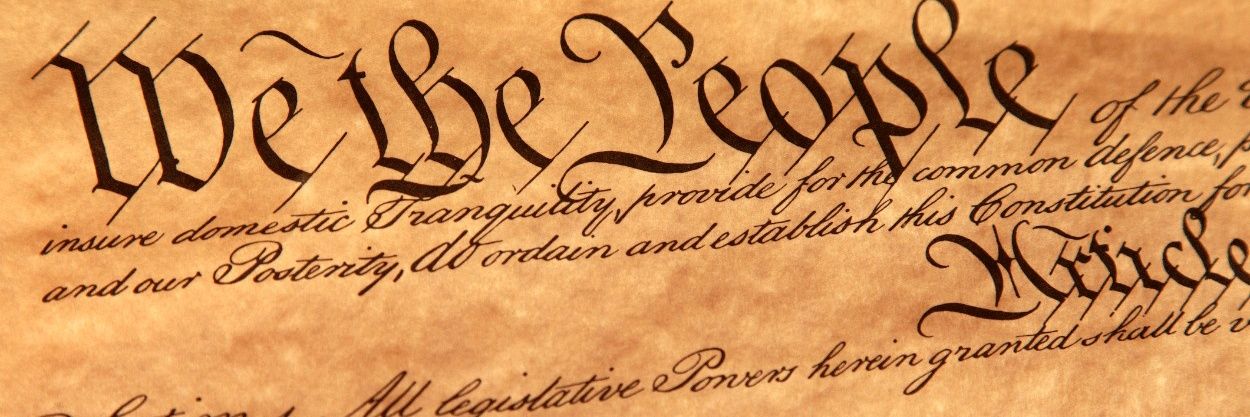 We the People of the
insure domestic Tranquility, provide for the common defence,
and our Posterity, do ordain and establish this Constitution for
Article
All legislative Powers herein granted shall be